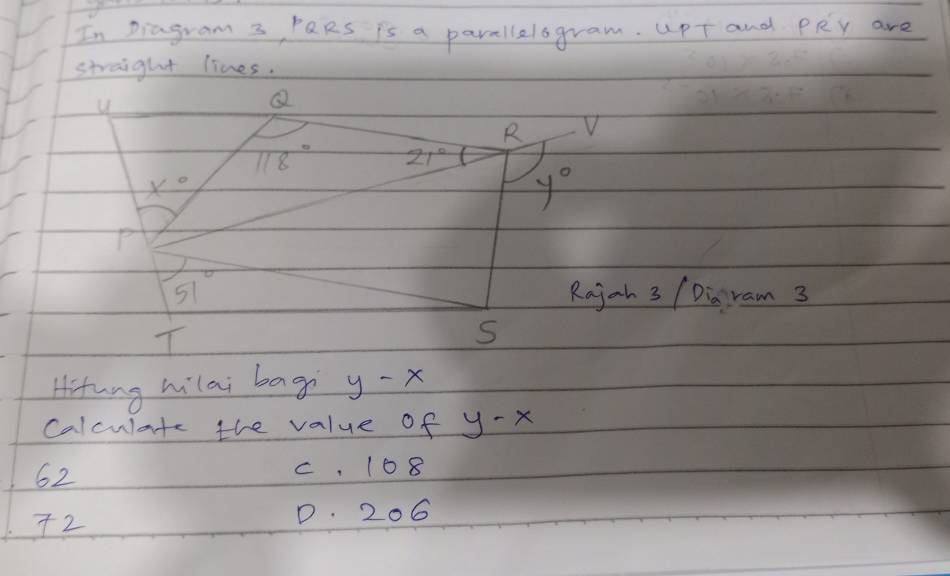 In Diagram 3, PQRS is a parallelogram. UPT and PRV are
straight lines.
U Q R V
118° 21° y°
x°
P
51°
Rajah 3 / Diagram 3
T S
Hitung nilai bagi y - x
Calculate the value of y - x
62 C. 108
72 D. 206